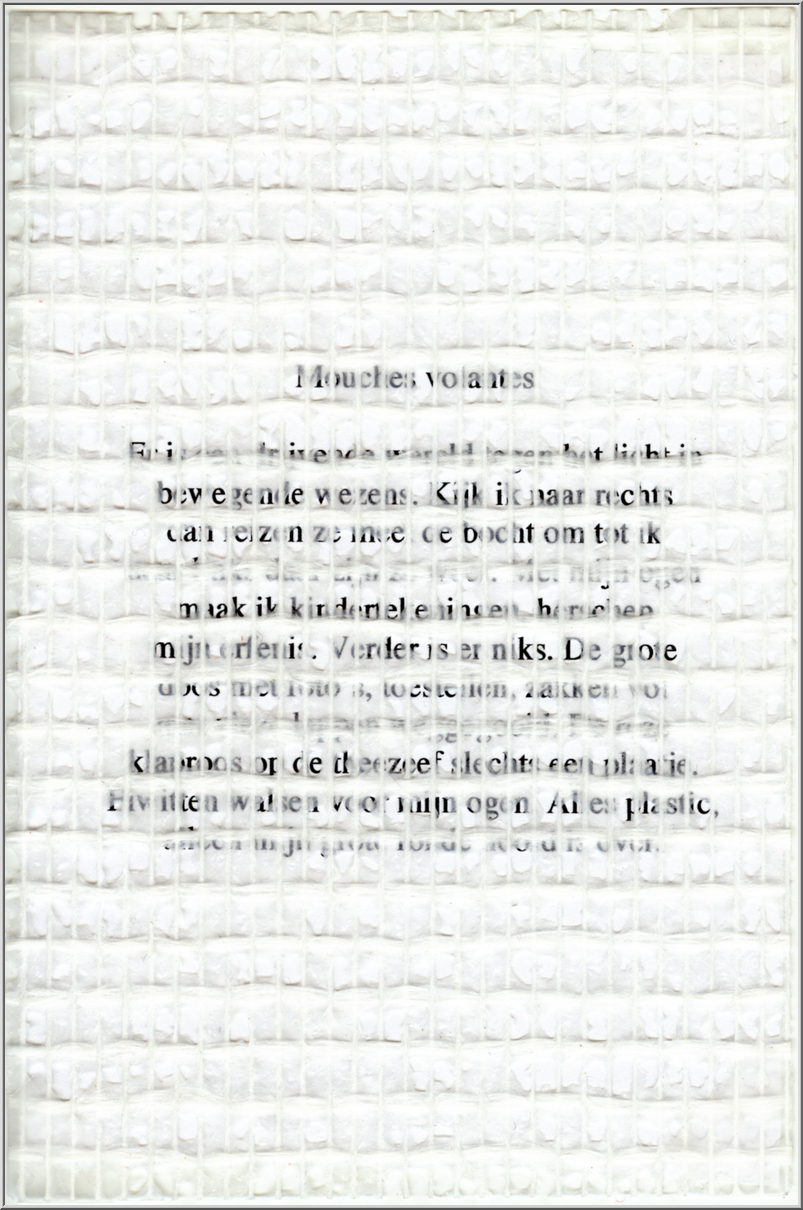 Mouches volantes
Er is een drijvende wereld tegen het licht in
bewegende wezens. Kijk ik naar rechts
dan reizen ze mee de bocht om tot ik
daar zijn Met mijn ogen
maak ik kindertekeningen, herschep
mijn erfenis. Verder is er niks. De grote
doos met foto's, toestellen, zakken vol

klaproos op de theezeef slechts een plaatje.
Eiwitten walsen voor mijn ogen. Alles plastic,
alleen mijn grote ronde hoofd is over.